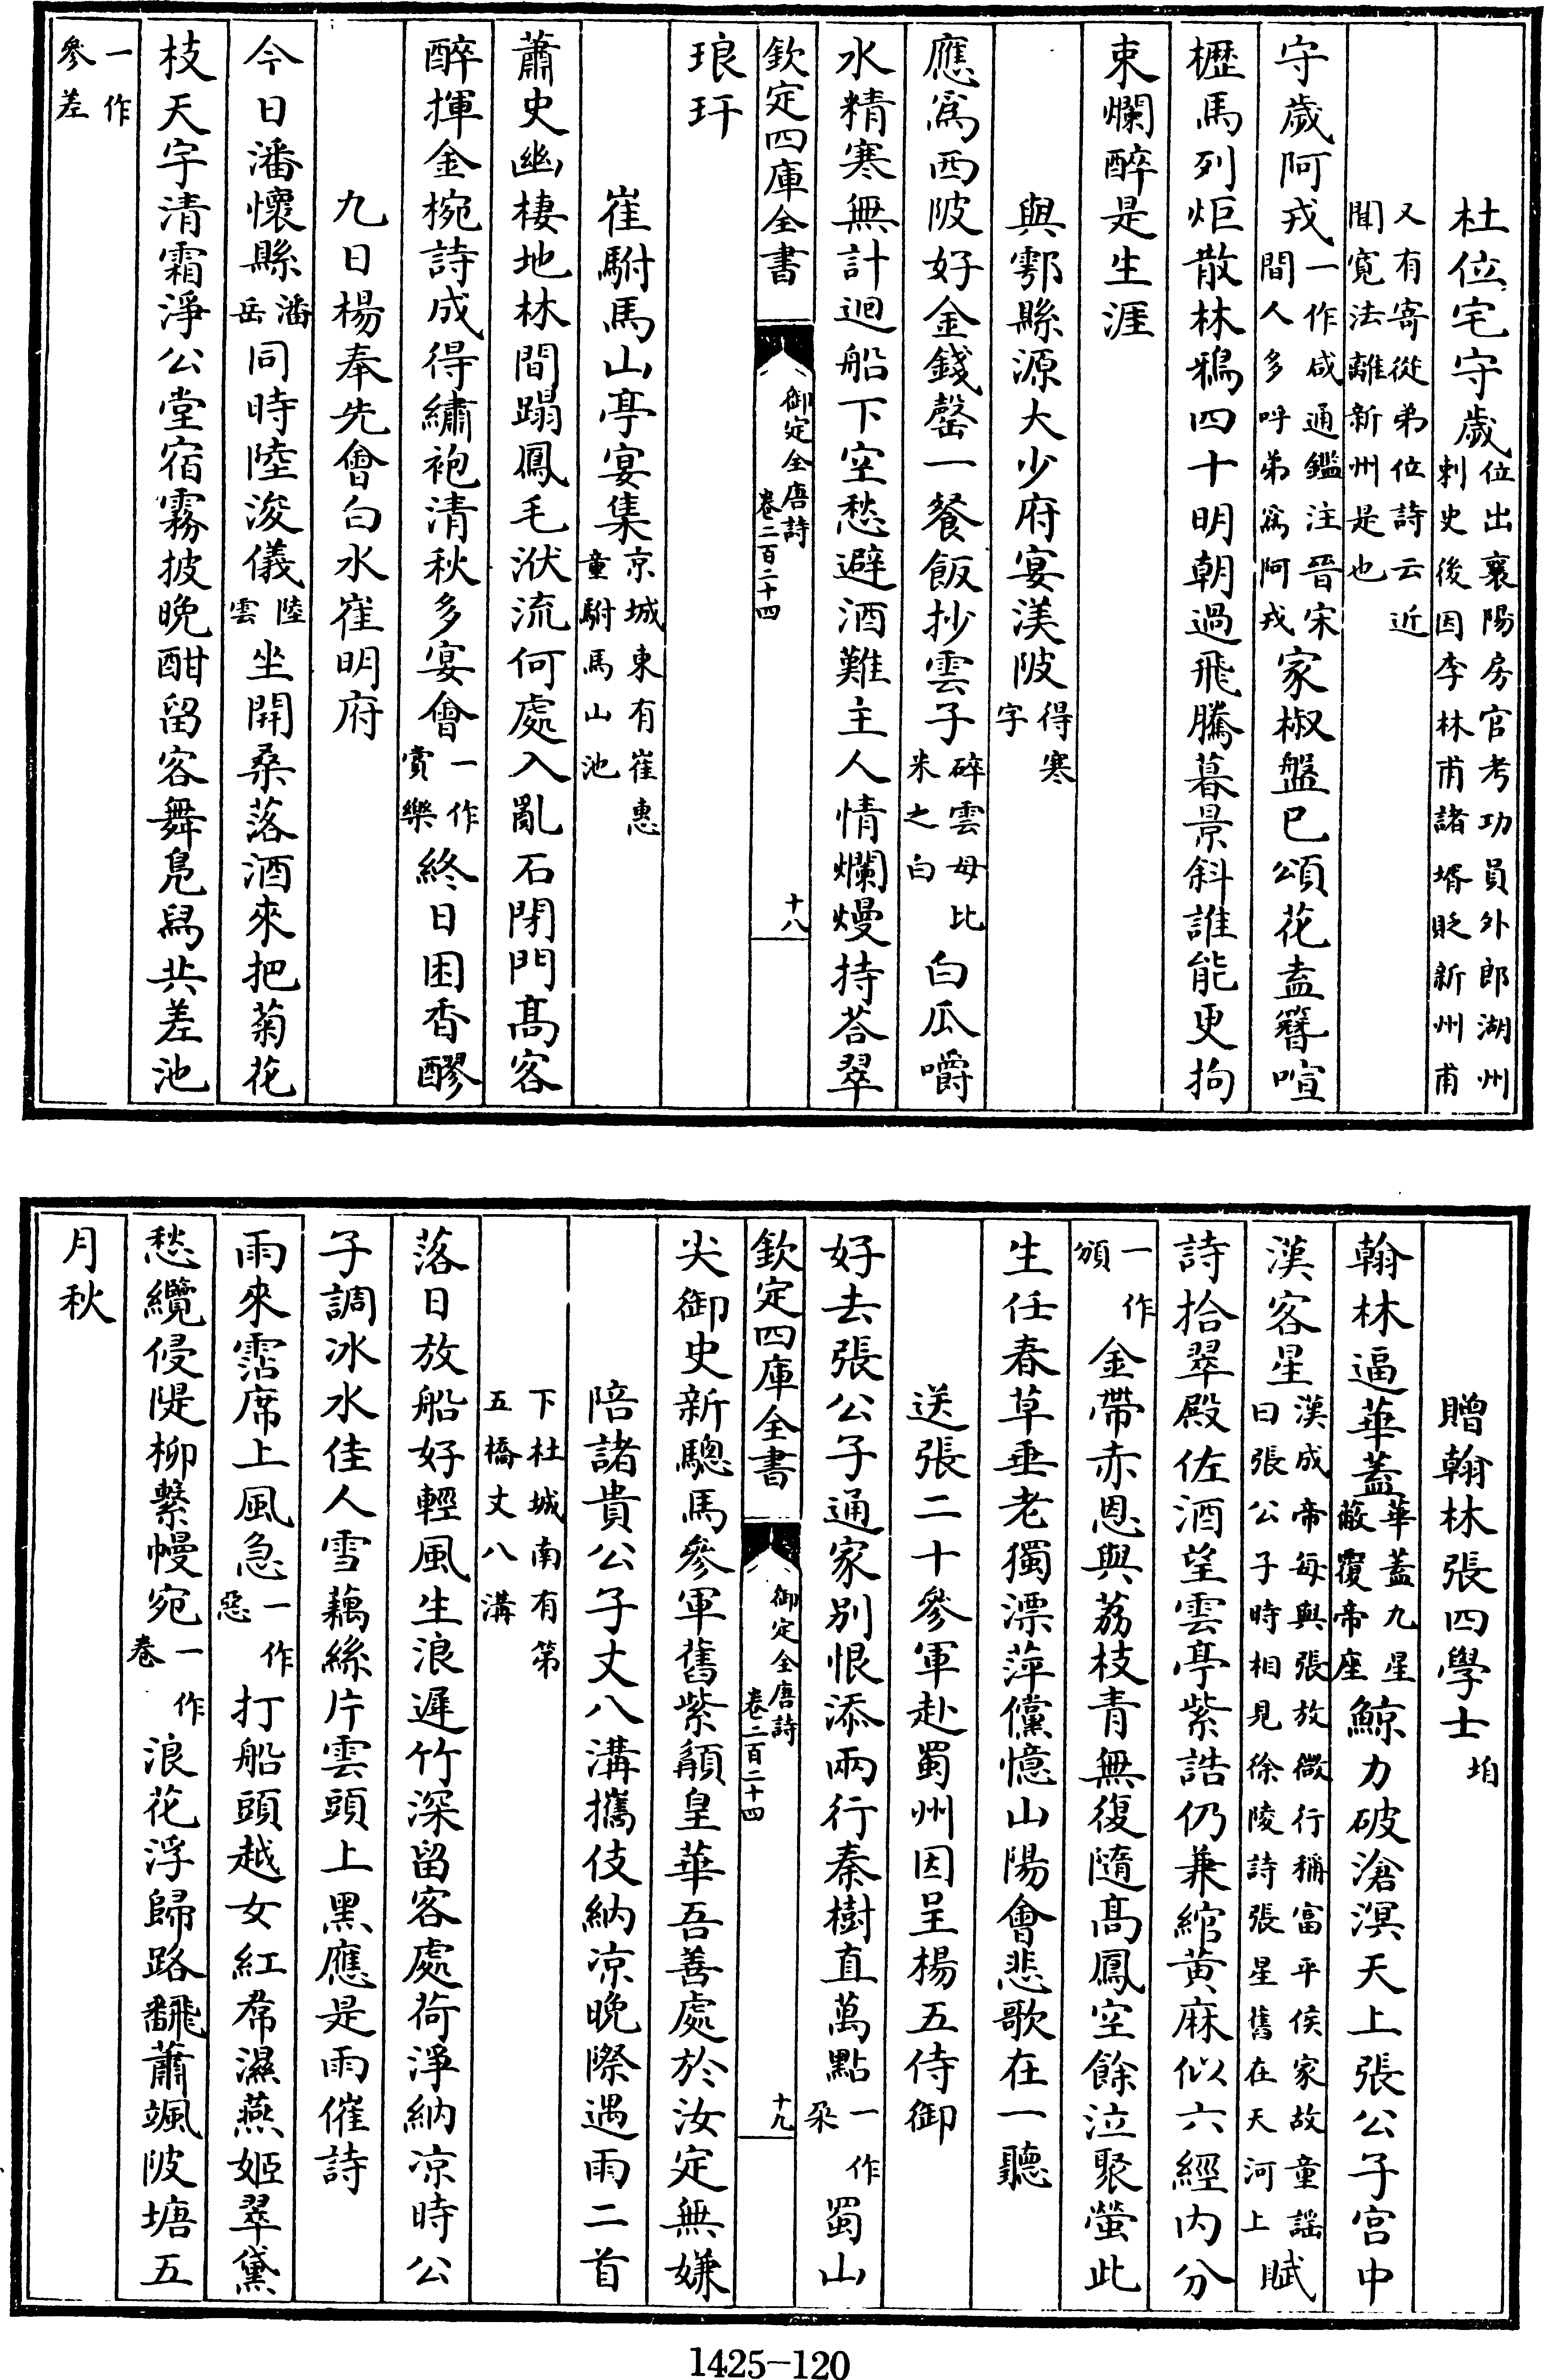 杜位宅守歲位出襄陽房官考功員外郎湖州刺史後因李林甫諸壻貶新州甫
又有寄從弟位詩云近聞寛法離新州是也
守歲阿戎一作咸通鑑注晉宋間人多呼弟為阿戎家椒盤已頌花盍簪喧
櫪馬列炬散林鴉四十明朝過飛騰暮景斜誰能更拘
束爛醉是生涯
與鄠縣源大少府宴渼陂得寒字
應爲西陂好金錢罄一餐飯抄雲子碎雲母比米之白白瓜嚼
水精寒無計迴船下空愁避酒難主人情爛熳持荅翠
欽定四庫全書
御定全唐詩
卷二百二十四
十八
琅玕
崔駙馬山亭宴集京城東有崔惠童駙馬山池
蕭史幽棲地林間蹋鳳毛洑流何處入亂石閉門髙客
醉揮金椀詩成得繡袍清秋多宴會一作賞樂終日困香醪
九日楊奉先會白水崔明府
今日潘懷縣潘岳同時陸浚儀陸雲坐開桑落酒來把菊花
枝天宇清霜淨公堂宿霧披晚酣留客舞鳧舄共差池
一作參差
贈翰林張四學士垍
翰林逼華蓋華蓋九星蔽覆帝座鯨力破滄溟天上張公子宫中
漢客星漢成帝每與張放微行稱富平侯家故童謡曰張公子時相見徐陵詩張星舊在天河上賦
詩拾翠殿佐酒望雲亭紫誥仍兼綰黄麻似六經内分
一作頒金帶赤恩與荔枝青無復隨髙鳳空餘泣聚螢此
生任春草垂老獨漂萍儻憶山陽會悲歌在一聽
送張二十參軍赴蜀州因呈楊五侍御
好去張公子通家别恨添兩行秦樹直萬點一作朶蜀山
欽定四庫全書
御定全唐詩
卷二百二十四
十九
尖御史新驄馬參軍舊紫髯皇華吾善處於汝定無嫌
陪諸貴公子丈八溝攜伎納凉晚際遇雨二首
下杜城南有第五橋丈八溝
落日放船好輕風生浪遲竹深留客處荷淨納凉時公
子調冰水佳人雪藕絲片雲頭上黑應是雨催詩
雨來霑席上風急一作惡打船頭越女紅帬濕燕姬翠黛
愁纜侵隄柳繫幔宛一作卷浪花浮歸路飜蕭颯陂塘五
月秋
1425-120